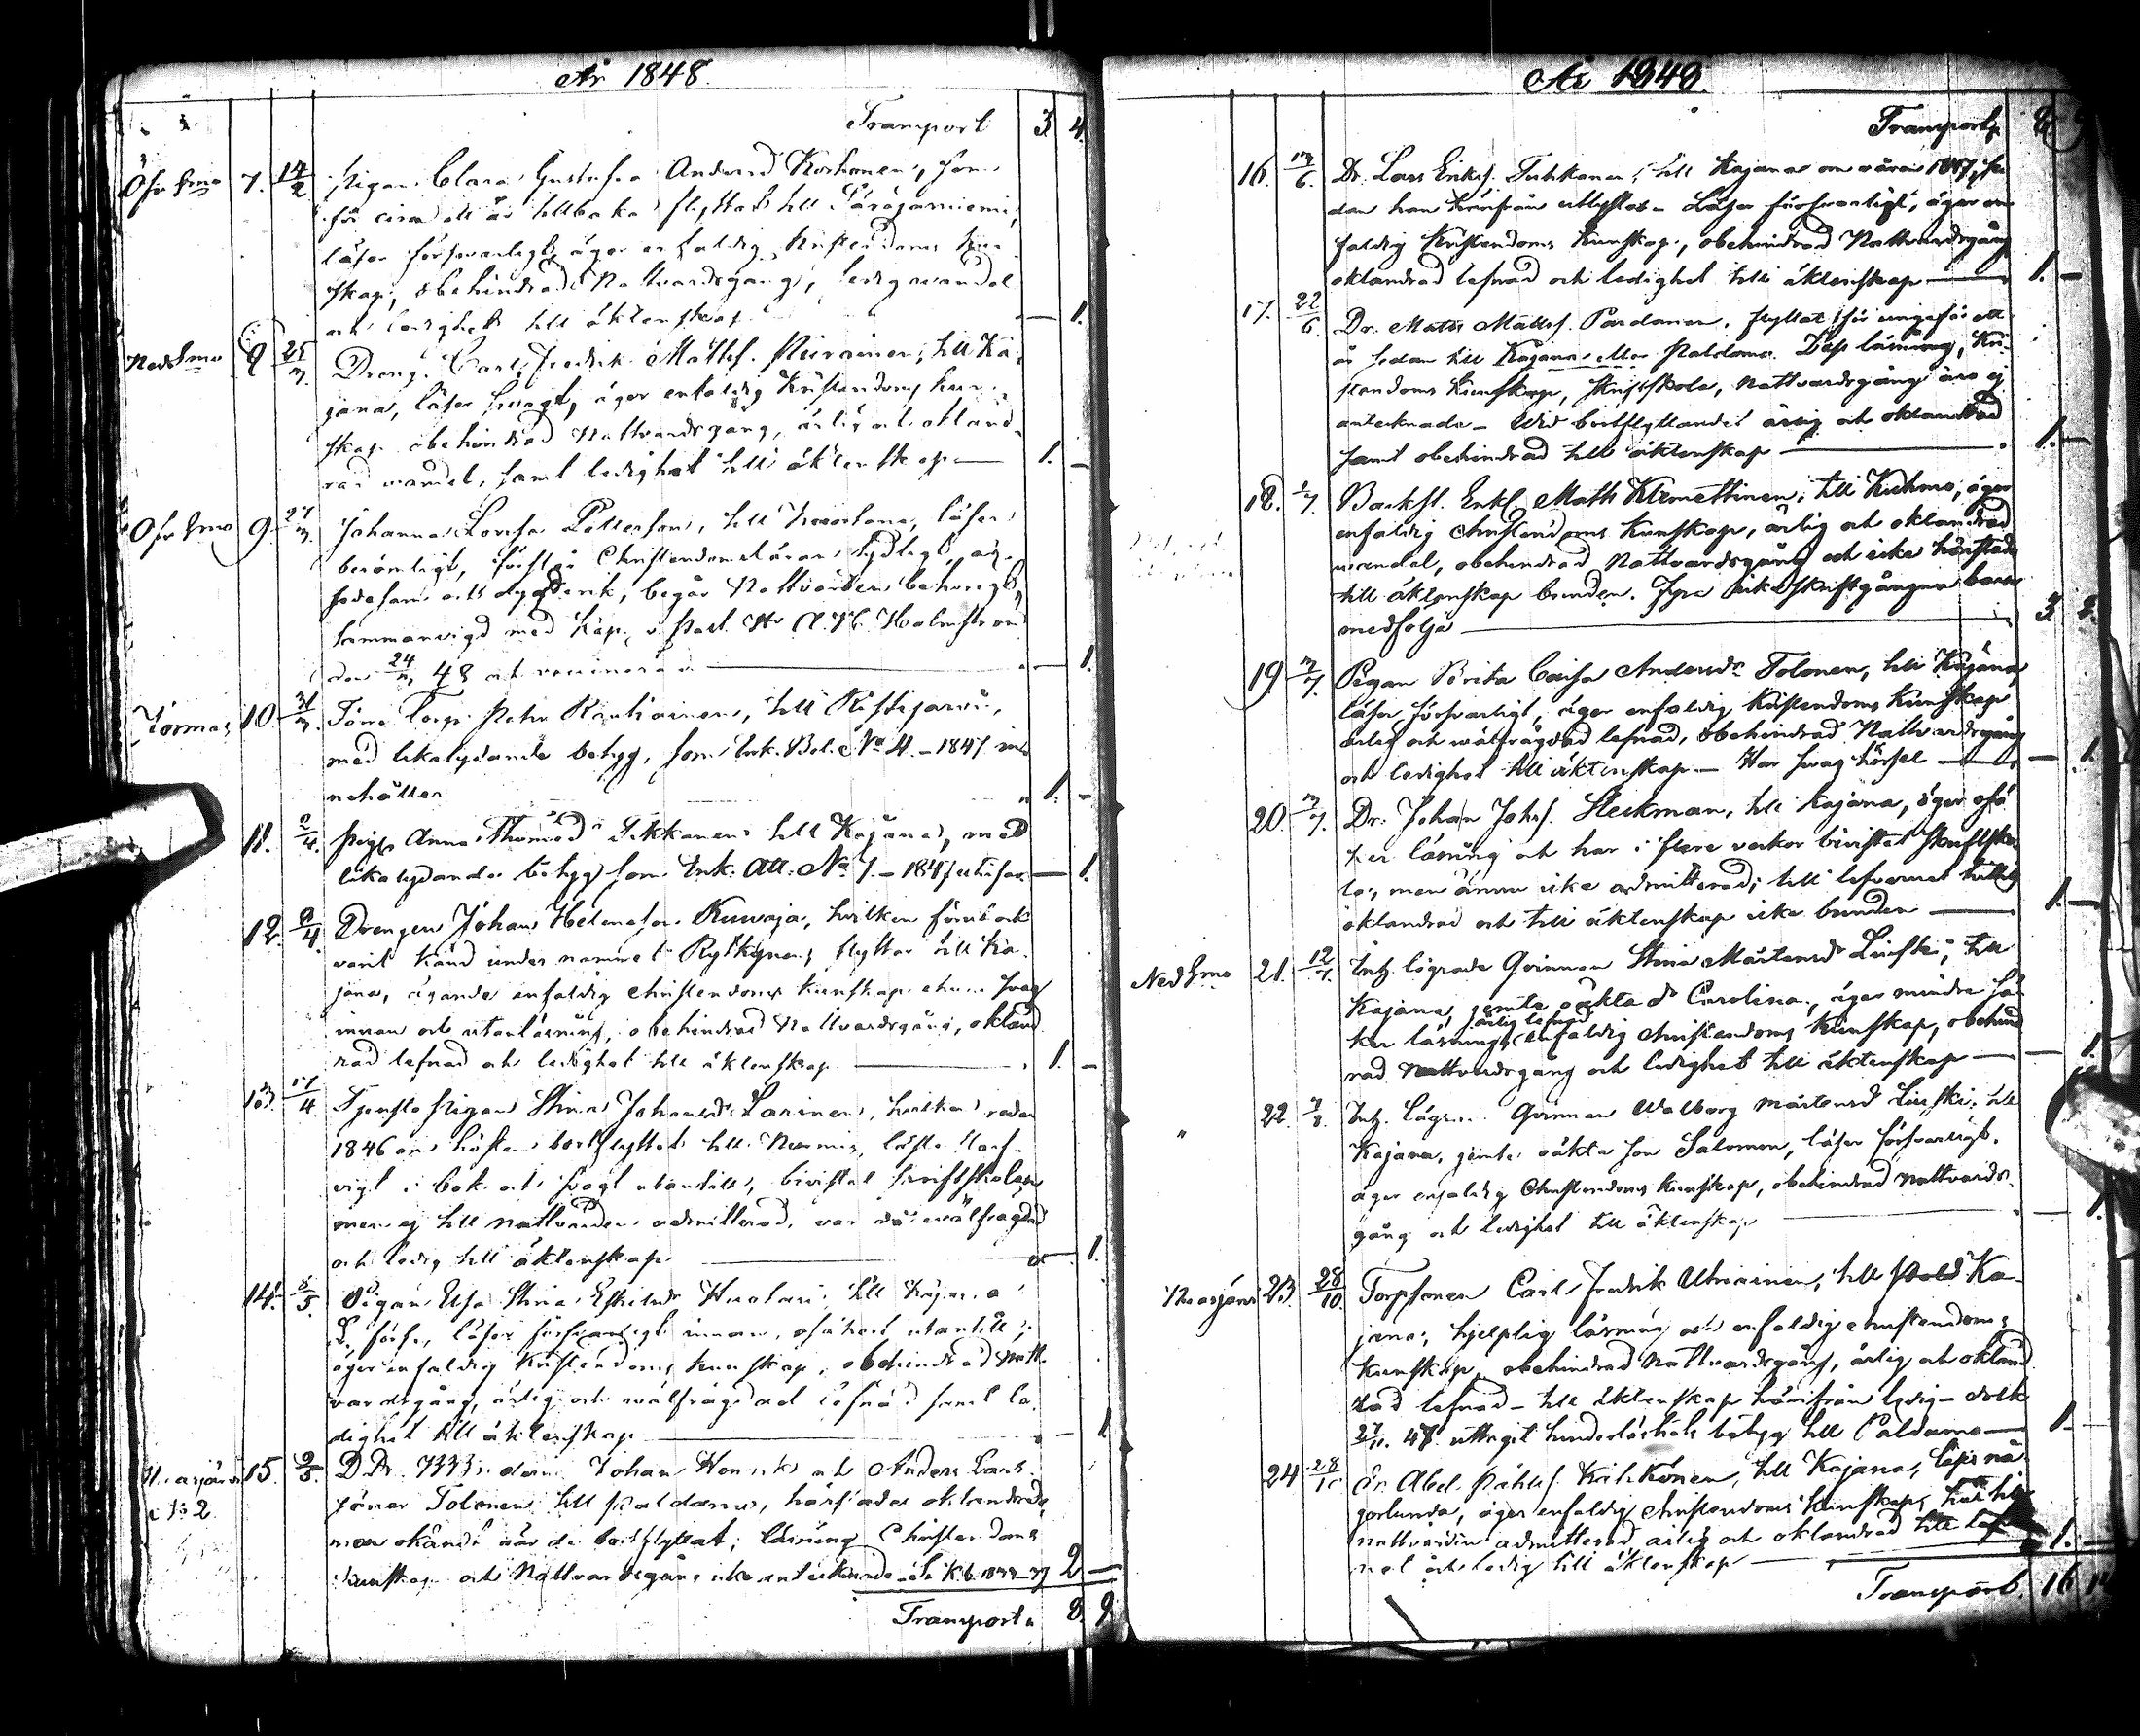 År 1848.
Transport 3. 4.
Öfv Smo 7. 17/2 Pigan Clara Gustafva Andersd Korhonen, som
för cirea ett år tillbaka flyttat till Säräjärniemi,
läser försvarligt, äger enfaldig Kristendoms kun-
skap, obehindrad Nattvardsgång, ledig vandel
och ledighet till äktenskap — 1.
Ned Smo 8 25/3. Dreng. Carl Fredrik Mattss. Piirainen, till Ka-
jana, läser svagt, äger enfaldig Kristendoms kun-
skap obehindrad Nattvardsgång, ärlig och okland-
rad vandel, samt ledighet till äktenskap — 1. —
Öfv Smo 9. 27/3. Johanna Lovisa Petterson, till läser
berömligt, förstår Christendomsläran tydligt, är
sedesam och dygderik, begår Nattvarden behörigt,
sammanvigd med Kap. v. Past. Hr A. W. Holmström
den 24/3 48 och vaccinerad — 1.
Jormas 10. 31/3. Töres Torp. Petr. Rautiainen, till Ristijärvi,
med likalydande betyg, som Ink. Bet. No 4. - 1847 in-
nehåller " 1. -
11. 2/4. Pigan Anna Thomasdr Tikkanen till Kajana, med
likalydande betyg som Ink. Att. No 7. - 1847 utvisar — 1.
12. 9/4. Drengen Johan Helenason Kuvaja, hvilken förut ock
varit känd under namnet Rytkönen, flyttar till Ka-
jana, ägande enfaldig christendoms kunskap ehuru svag
innan och utanläsning, obehindrad Nattvardsgång, okland-
rad lefnad och ledighet till äktenskap — 1. -
13. 17/4. Tjenste Pigan Stina Johansdr Larinen, hvilken redan
1846 om hösten bortflyttat till Nurmis, läste
i bok och svagt utantill, bivistat skriftskolan
men ej till nattvarden admitterad, var då välfrägdad
och ledig till äktenskap — 1.
14. 8/5. Pigan Elsa Stina Eskilsdr Huotari till Kajana
läser försvarligt innan, osäkert utantill,
äger enfaldig Kristendoms kunskap, obehindrad Natt-
vardsgång, ärlig och wälfrägdad lefnad samt le-
dighet till äktenskap — 1
15. 9/5. D. Dr. Johan Henrik och Anders Lars-
söner Tolonen till Paldamo, härstädes oklandrade
men okändt när de bortflyttat; läsning Christendoms
kunskap och Nattvardsgång icke antecknade 2 —
No 2.
Transport. 8. 9
År 1848.
Transport. 8 9
16. 13/6. Dr. Lars Erikss. Tuhkanen, till Kajana om våren 1847, se-
dan han härifrån utflyttat - Läser försvarligt, äger en-
faldig Kristendoms kunskap, obehindrad Nattvardsgång
oklandrad lefnad och ledighet till äktenskap — 1. —
17. 22/6 Dr. Matts Mattss. Pardanen, flyttat för ungefär ett
år sedan till Kajana eller Paldamo. Dess läsning, Kri-
stendoms kunskap, Skriftskola, Nattvardsgång äro ej
antecknade - Wid bortflyttandet ärlig och oklandrad
samt obehindrad till äktenskap — 1. —
18. 1/7 Backst. Enkl. Matts Klemettinen, till Kuhmo, äger
enfaldig christendoms kunskap, ärlig och oklandrad
wandel, obehindrad Nattvardsgång och icke härstädes
till äktenskap bunden. Fyra icke skriftgångna barn
medfölja — 3. 2.
19 3/7. Pigan Brita Caisa Andersdr Tolonen, till Kajana
läser försvarligt, äger enfaldig Kristendoms kunskap
ärlig och wälfrägdad lefnad, obehindrad Nattvardsgång
och ledighet till äktenskap — Har svag hörsel — 1.
20. 3/7. Dr. Johan Johss. Heckman, till Kajana, äger osä-
ker läsning och har i flere veckor bivistat skriftsko-
la, men ännu icke admitterad; till lefvernet hittills
oklandrad och till äktenskap icke bunden — 1. —
Ned Smo 21. 12/7. Inh. lägrade Qvinnan Stina Mårtensdr Liuski, till
Kajana, jemte oäkta dr Carolina, äger mindre sä-
ärlig lefnad
ker läsning, enfaldig christendoms kunskap, obehind-
rad Nattvardsgång och ledighet till äktenskap — 1.
" 22. 7/8. Inh. lägr. Qvinnan Walborg Mårtensd Liuski, till
Kajana, jemte oäkta son Salomon, läser försvarligt,
äger enfaldig Christendoms kunskap, obehindrad Nattvards-
gång och ledighet till äktenskap — 1.
23. 28/10 Torpsonen Carl Fredrik Utriainen, till Ka-
jana, hjelplig läsning och enfaldig christendoms
kunskap, obehindrad Nattvardsgång, ärlig och okland-
rad lefnad - till äktenskap härifrån ledig - dock
27/11. 47. uttagit hinderlöshets betyg till Paldamo — 1
24 28/10 Dr. Abel Påhlss. Keikkonen, till Kajana, läser nå-
gorlunda, äger enfaldig christendoms kunskap,
nattvarden admitterad, ärlig och oklandrad till lefver-
net och ledig till äktenskap — 1. —
Transport. 16 14